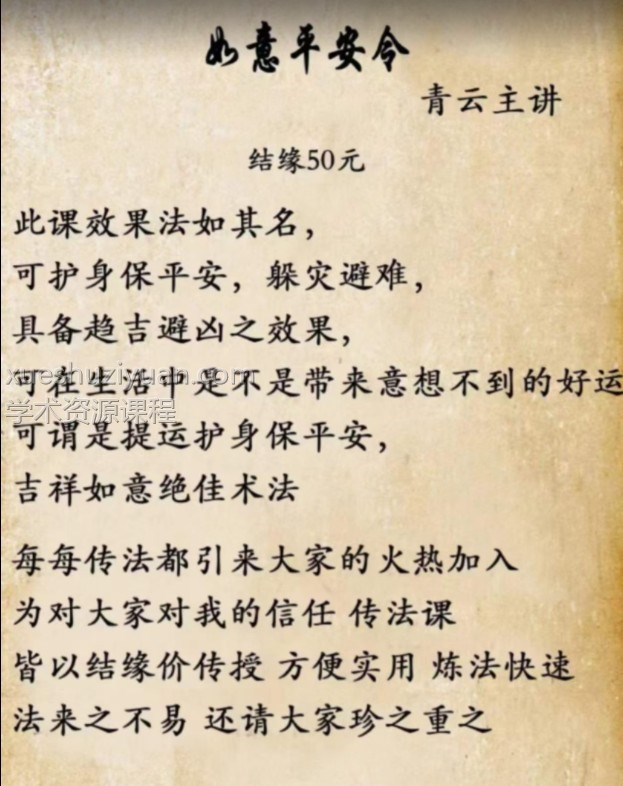 如意平安令
青云主讲
结缘50元
此课效果法如其名，
可护身保平安，躲灾避难，
具备趋吉避凶之效果，
xueshuziyuan.com
可在生活中是不是带来意想不到的好运
学术资源课程
可谓是提运护身保平安，
吉祥如意绝佳术法
每每传法都引来大家的火热加入
为对大家对我的信任 传法课
皆以结缘价传授 方便实用 炼法快速
法来之不易 还请大家珍之重之